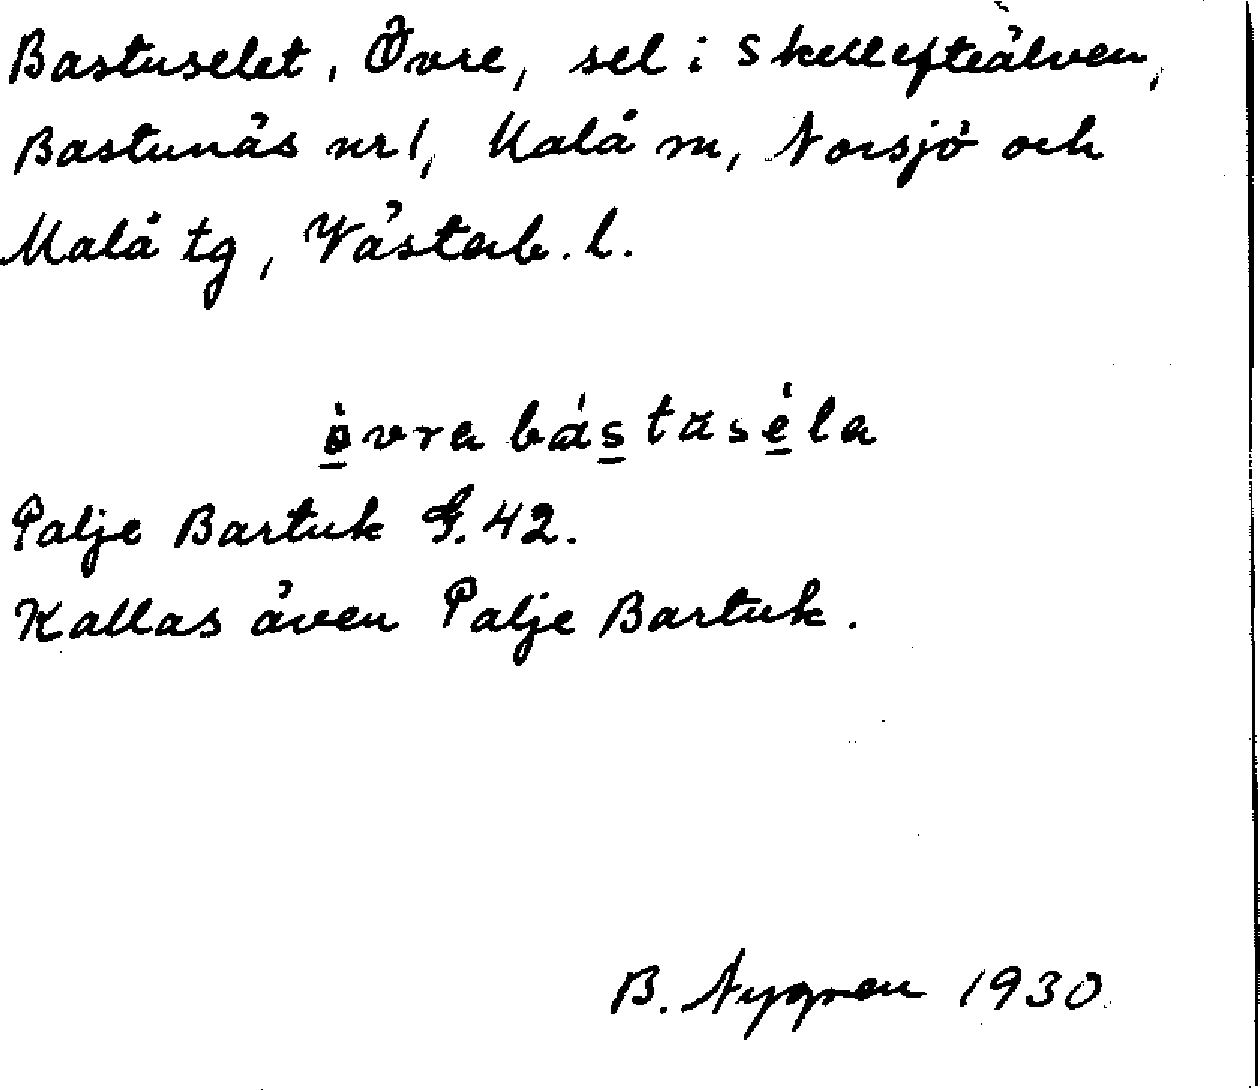 Bastuselet, Övre, sel i Skellefteälven,
Bastunäs nr 1, Malå sn, Norsjö och
Malå tg, Västerb. l.
òvra bástaséla
Palje Bartuk G. 42.
Kallas även Palje Bartuk.
B. Nygren 1930